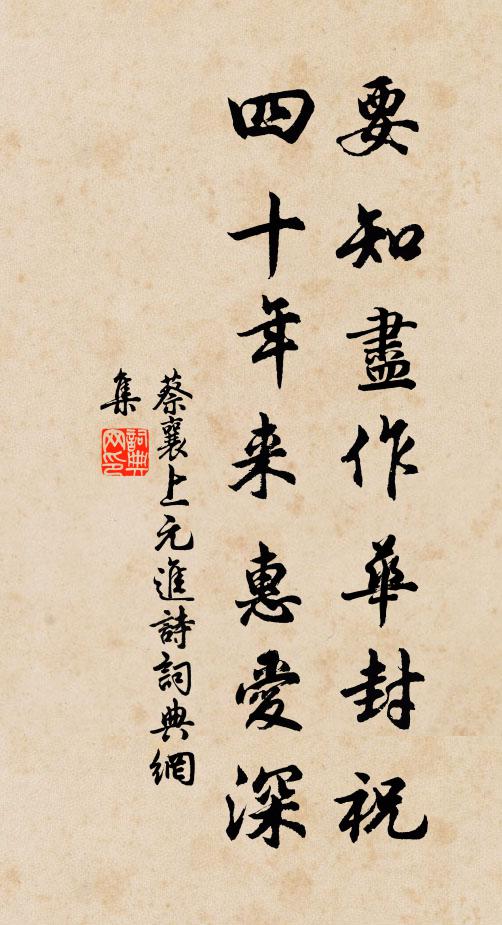 要知盡作華封祝
四十年来惠愛深
蔡襄上元進詩詞典網
集
詞典網印